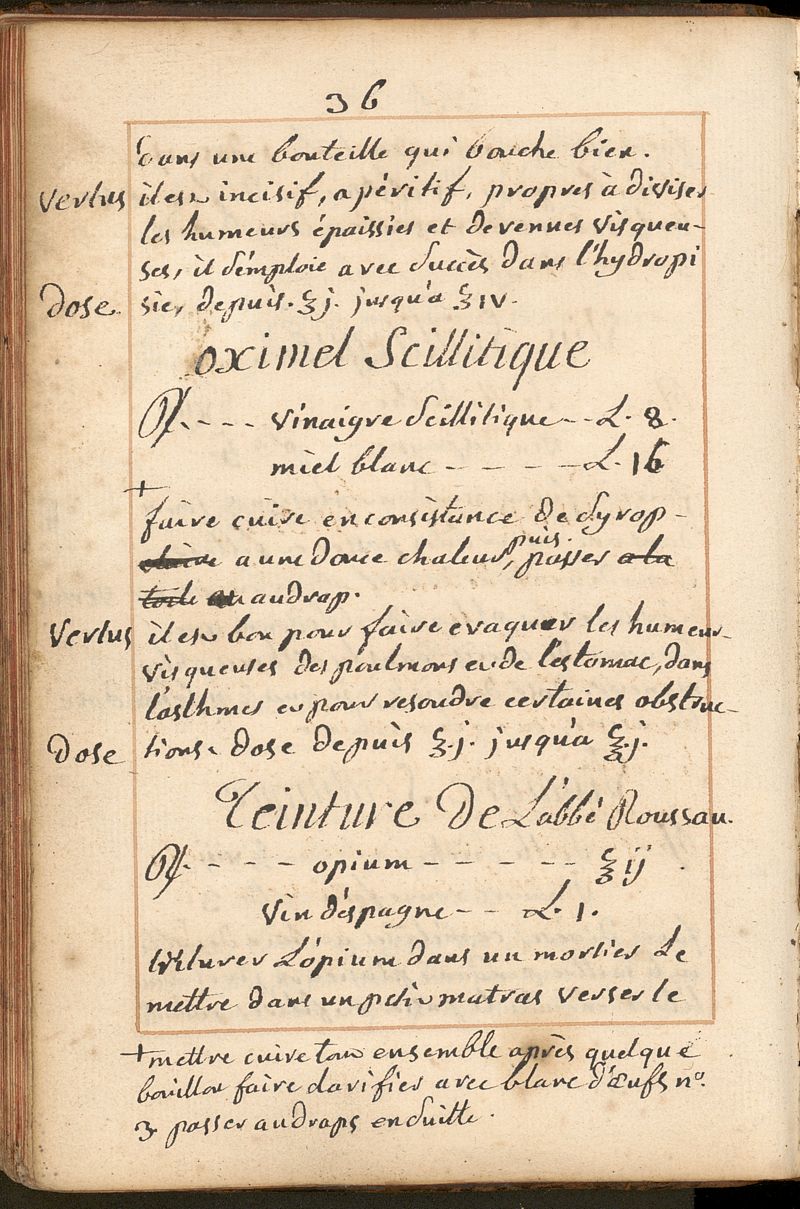 36
dans une bouteille qui bouche bien.
vertus il est incisif, apéritif, propres à diviser
les humeurs épaissies et devenues visqueu-
ses, il s'émploie avec succès dans l'hydropi
Dose sie, depuis ℥j. jusqu'a ℥iv.
oximel Scillitique
℞. - - - vinaigre scillitique - - L. 8.
miel blanc - - - - - L. 16
+
faire cuire en consistance de syrop-
claire a une douce chaleur, puis. passer a la
toile au audrap.
vertus il est bon pour faire evaquer les humeur-
visqueuses des poulmons et de l'estomac, dans
l'asthmes et pour resoudre certaines obstruc-
Dose tions. dose depuis ʒ.j. jusqu'a ℥.j.
Teinture De L'abbé Roussau.
℞. - - - - opium - - - - - ℥ij
vin d'éspagne - - L. 1.
triturer L'ópium dans un mortier Le
mettre dans un petit matras verser le
+ mettre cuire tout ensemble après quelque
bouillon faire clarifier avec blanc d'œufs n°.
3 passer audraps ensuitte.